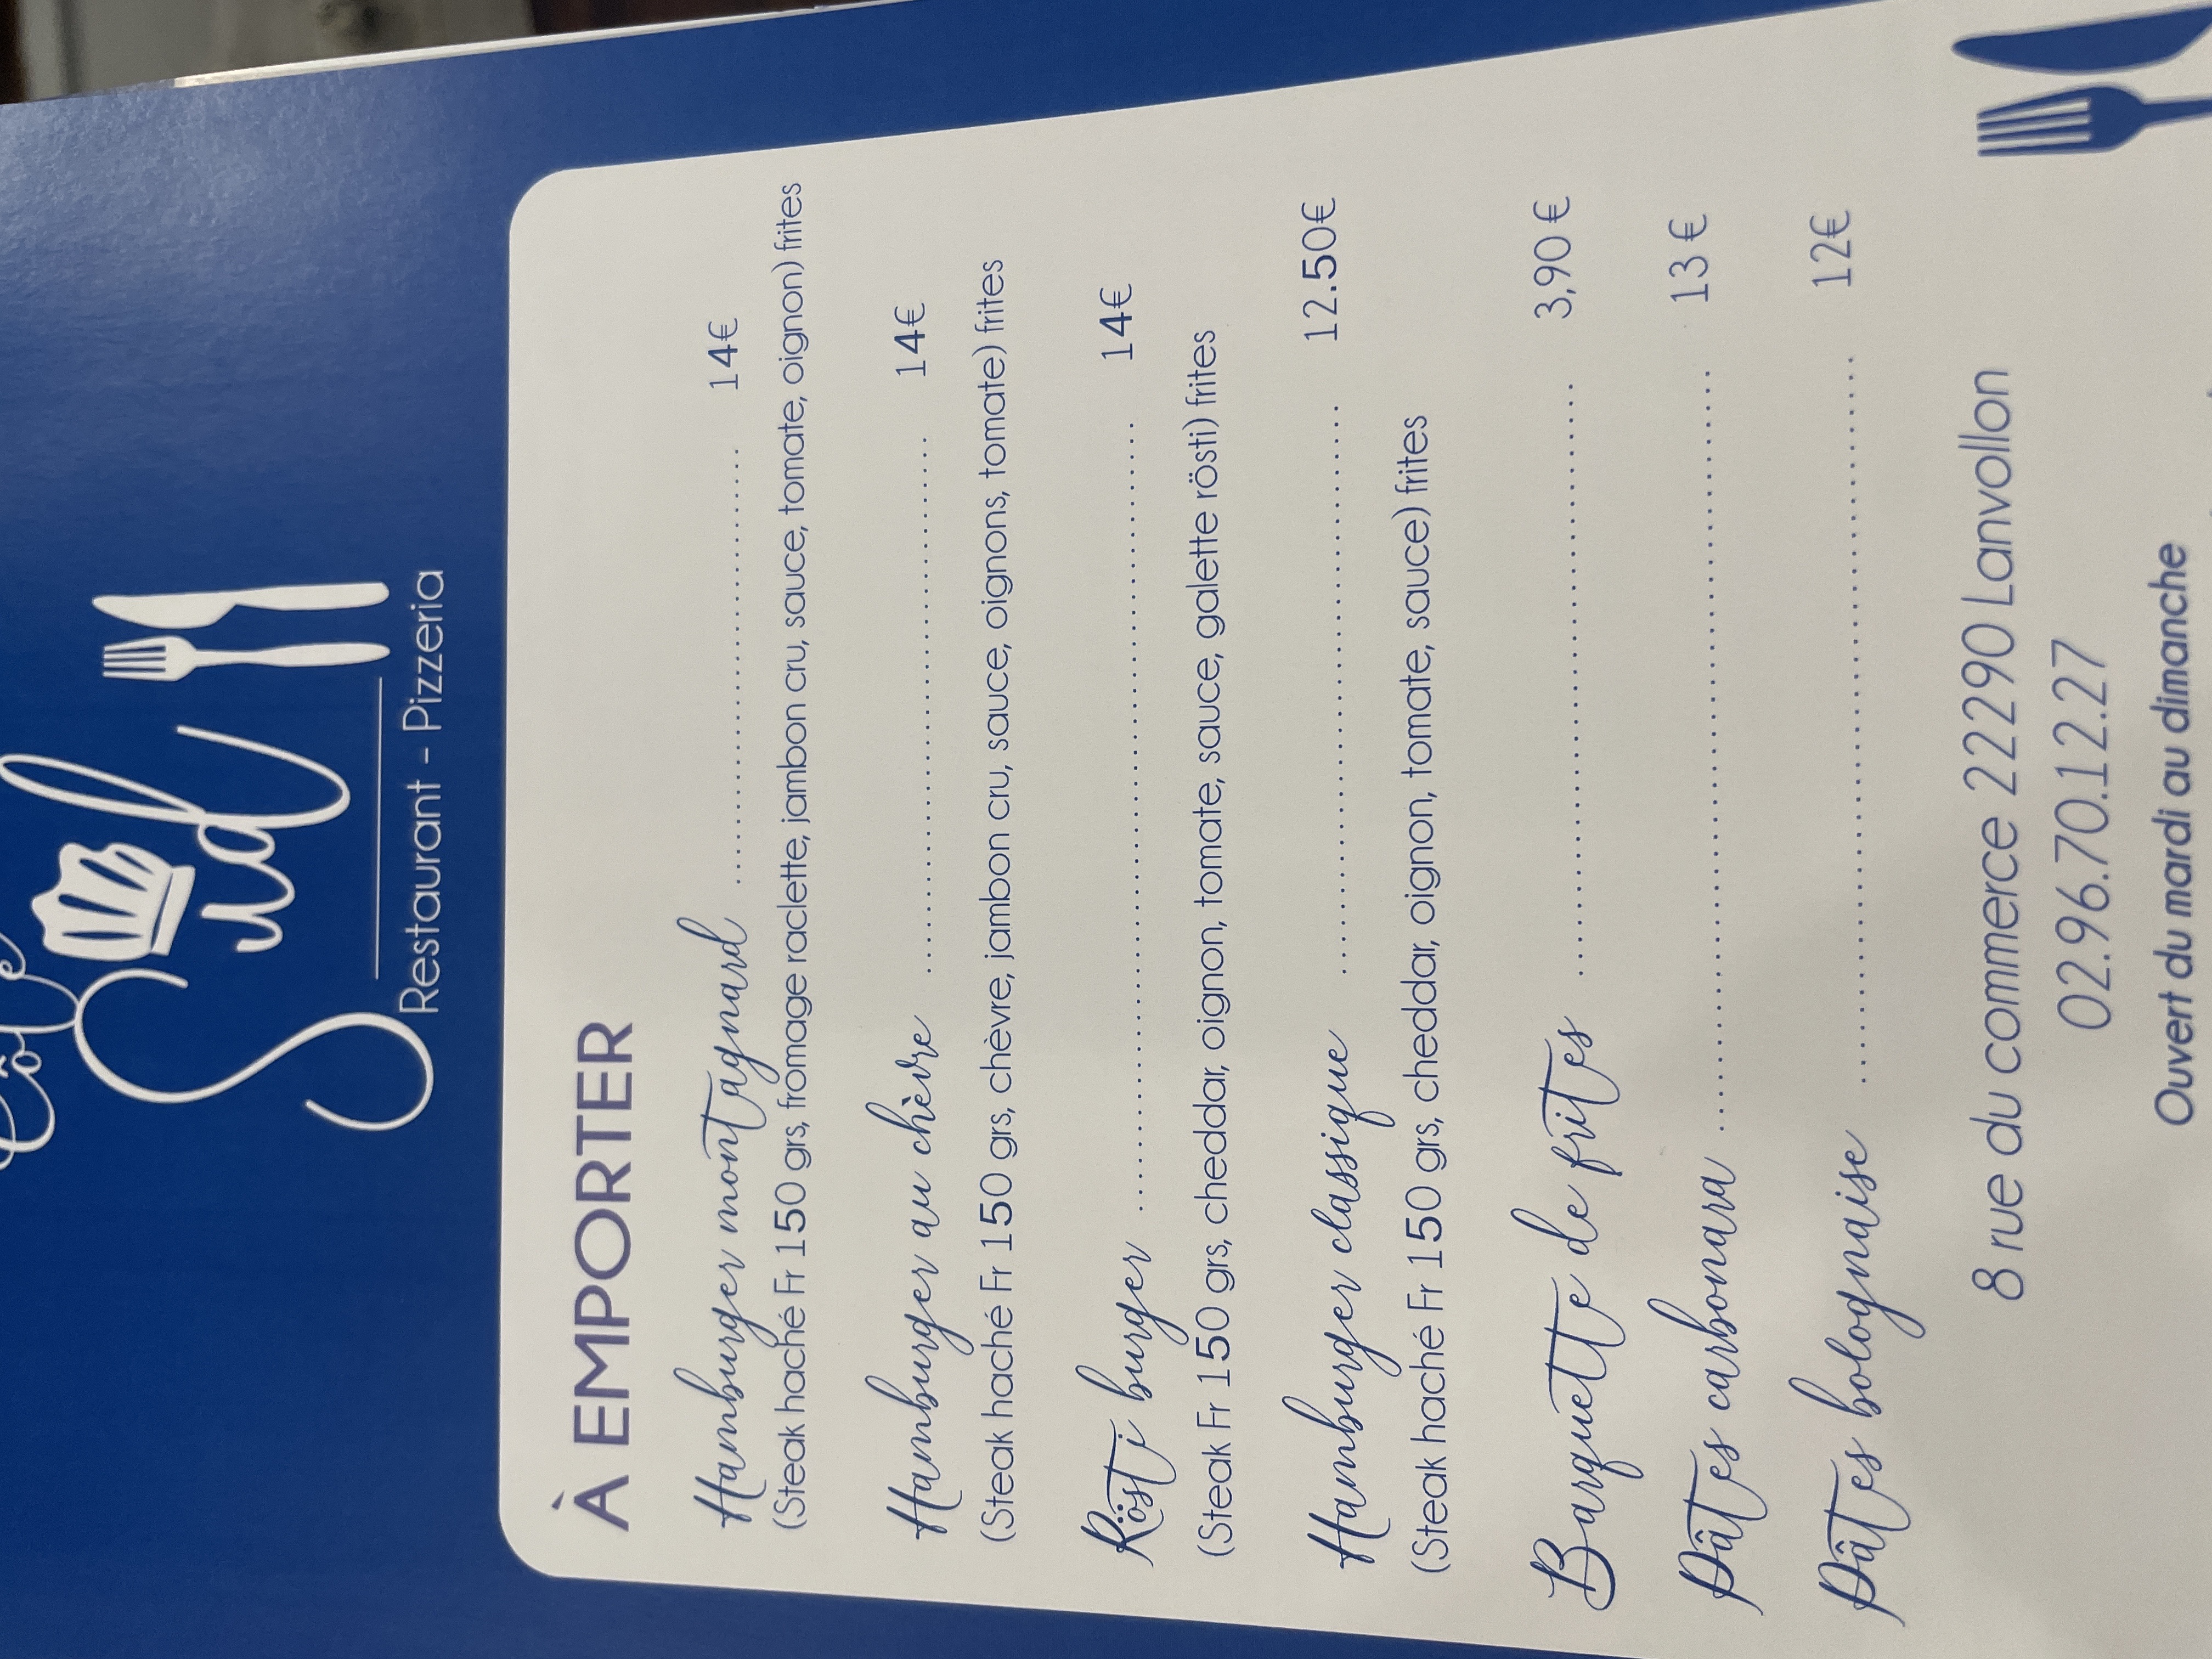 Côté
Sud
Restaurant - Pizzeria
À EMPORTER
Hamburger montagnard ........ 14€
(Steak haché Fr 150 grs, fromage raclette, jambon cru, sauce, tomate, oignon) frites
Hamburger au chèvre ........ 14€
(Steak haché Fr 150 grs, chèvre, jambon cru, sauce, oignons, tomate) frites
Rösti burger ........ 14€
(Steak Fr 150 grs, cheddar, oignon, tomate, sauce, galette rösti) frites
Hamburger classique ........ 12.50€
(Steak haché Fr 150 grs, cheddar, oignon, tomate, sauce) frites
Barquette de frites ........ 3,90 €
Pâtes carbonara ........ 13 €
Pâtes bolognaise ........ 12€
8 rue du commerce 22290 Lanvollon
02.96.70.12.27
Ouvert du mardi au dimanche